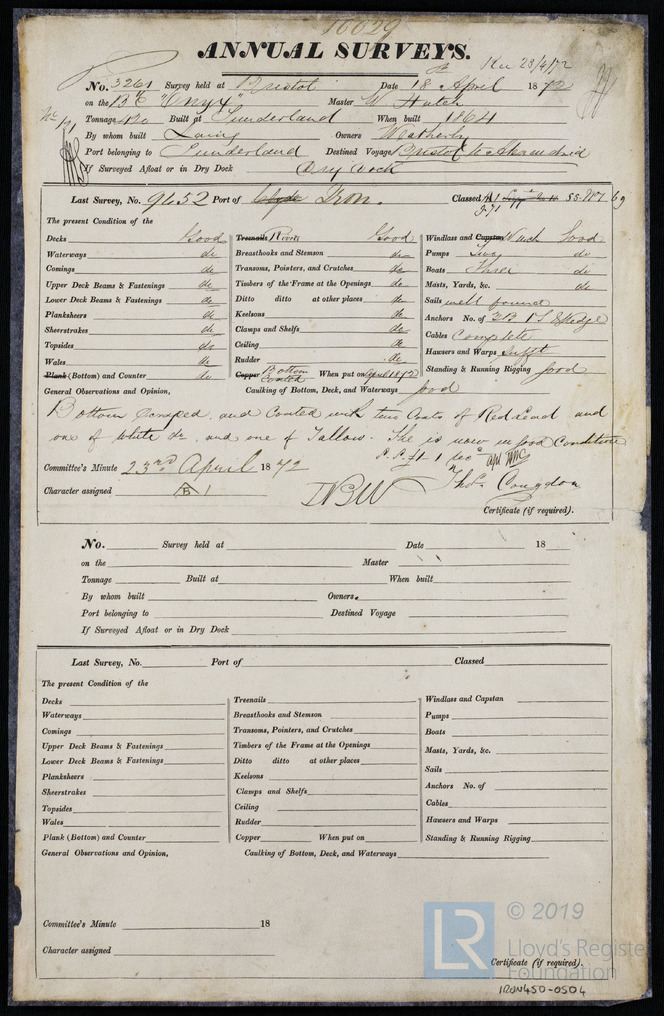 16029
ANNUAL SURVEYS.
Rec 23/4/72
No. 3261 Survey held at Bristol Date 18 April 1872
on the "Onyx" Master W Hutch
Tonnage 420 Built at Sunderland When built 1864
By whom built Laing Owners Weatherley
Port belonging to Sunderland Destined Voyage Bristol to
If Surveyed Afloat or in Dry Dock Dry Dock
Last Survey, No. 9452 Port of Clyde Iron. Classed A1
The present Condition of the
Decks Good Treenails Rivets Good Windlass and Capstan Winch Good
Waterways do Breasthooks and Stemson do Pumps Two do
Comings do Transoms, Pointers, and Crutches do Boats Three do
Upper Deck Beams & Fastenings do Timbers of the Frame at the Openings do Masts, Yards, &c. do
Lower Deck Beams & Fastenings do Ditto ditto at other places do Sails well found
Planksheers do Keelsons do Anchors No. of 3B 1S & Kedge
Sheerstrakes do Clamps and Shelfs do Cables Complete
Topsides do Ceiling do Hawsers and Warps Sufft
Wales do Rudder do Standing & Running Rigging good
Plank (Bottom) and Counter do Copper Bottom Coated When put on April 1872
General Observations and Opinion, Caulking of Bottom, Deck, and Waterways good
Bottom Scraped and Coated with two Coats of Red Lead and
one of White do, and one of Tallow. She is now in good Condition
Committee's Minute 23rd April 1872
Thos. Congdon
Character assigned B 1
Certificate (if required).
No. Survey held at Date 18
on the Master
Tonnage Built at When built
By whom built Owners.
Port belonging to Destined Voyage
If Surveyed Afloat or in Dry Dock
Last Survey, No. Port of Classed
The present Condition of the
Decks Treenails Windlass and Capstan
Waterways Breasthooks and Stemson Pumps
Comings Transoms, Pointers, and Crutches Boats
Upper Deck Beams & Fastenings Timbers of the Frame at the Openings Masts, Yards, &c.
Lower Deck Beams & Fastenings Ditto ditto at other places Sails
Planksheers Keelsons Anchors No. of
Sheerstrakes Clamps and Shelfs Cables
Topsides Ceiling Hawsers and Warps
Wales Rudder
Plank (Bottom) and Counter Copper When put on Standing & Running Rigging
General Observations and Opinion, Caulking of Bottom, Deck, and Waterways
Committee's Minute 18
Character assigned
Certificate (if required).
LR © 2019
Lloyd's Register
Foundation
IRON450-0504